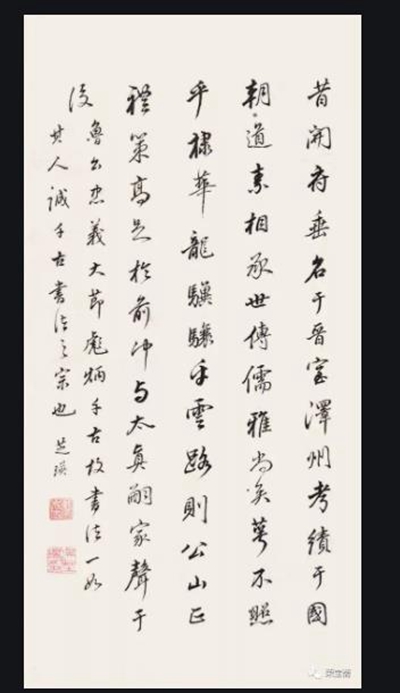 昔開府垂名于晉室澤州考績于國
朝道素相承世傳儒雅尚矣萼不照
乎棣華龍驥驤乎雲路則公山正
禮策高足於前冲与太真嗣家聲于
後 魯公忠義大節彪炳千古故書法一如
其人誠千古書法之宗也 芝瑛